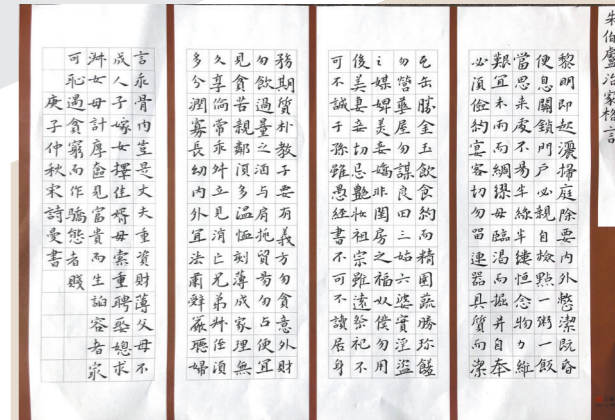 朱伯廬治家格言
黎明即起灑掃庭除要內外整潔既昏
便息關鎖門戶必親自檢點一粥一飯
當思來處不易半絲半縷恒念物力維
艱宜未雨而綢繆毋臨渴而掘井自奉
必須儉約宴客切勿留連器具質而潔
瓦缶勝金玉飲食約而精園蔬勝珍饈
勿營華屋勿謀良田三姑六婆實淫盜
之媒婢美妾嬌非閨房之福奴僕勿用
俊美妻妾切忌艷妝祖宗雖遠祭祀不
可不誠子孫雖愚經書不可不讀居身
務期質朴教子要有義方勿貪意外財
勿飲過量之酒与肩挑貿易勿占便宜
見貧苦親鄰須多溫恤刻薄成家理無
久享倫常乖舛立見消亡兄弟叔侄須
多分潤寡長幼內外宜法肅辭嚴聽婦
言乖骨肉豈是丈夫重資財薄父母不
成人子嫁女擇佳婿毋索重聘娶媳求
淑女毋計厚奩見富貴而生諂容者最
可恥遇貧窮而作驕態者賤
庚子仲秋宋詩曼書